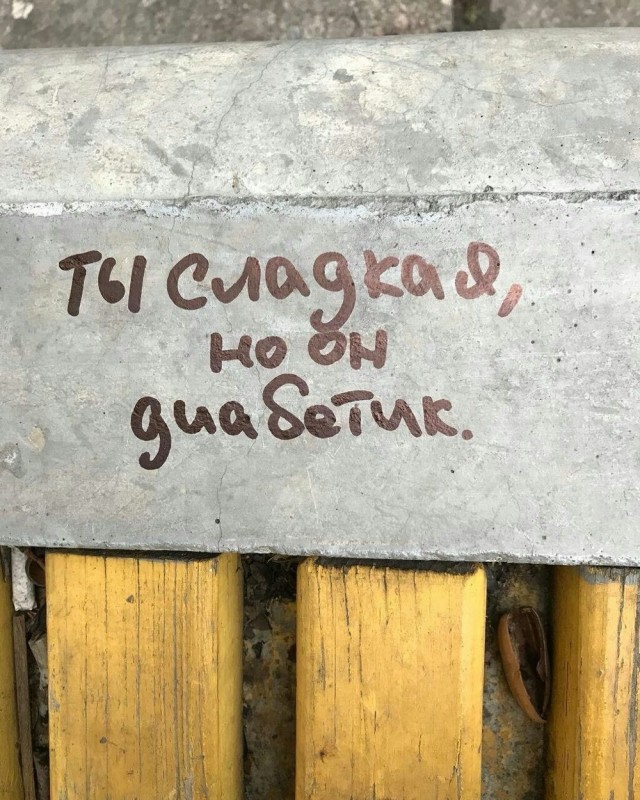 ты сладкая,
но он
диабетик.